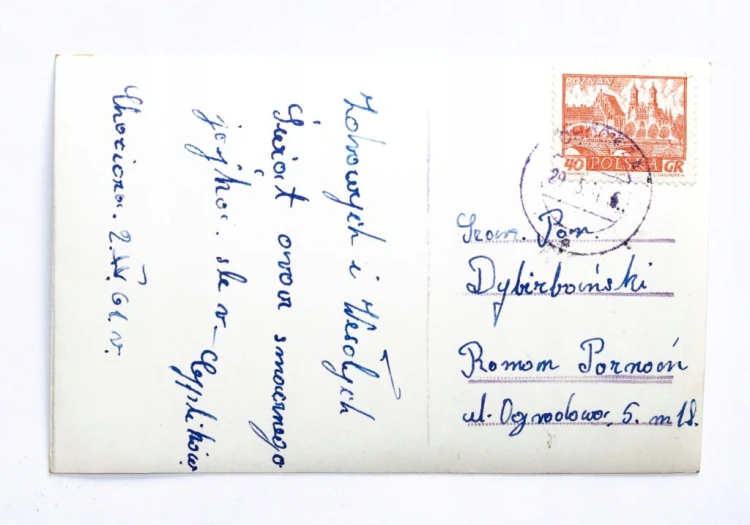 Zdrowych i Wesołych
Świąt oraz smacznego
jajka. śle r-
Chocicza. 2.IV.61.r.
POZNAŃ
40 POLSKA GR
Szan. Pan.
Roman Poznań
ul. Ogrodowa, 5. m 18.